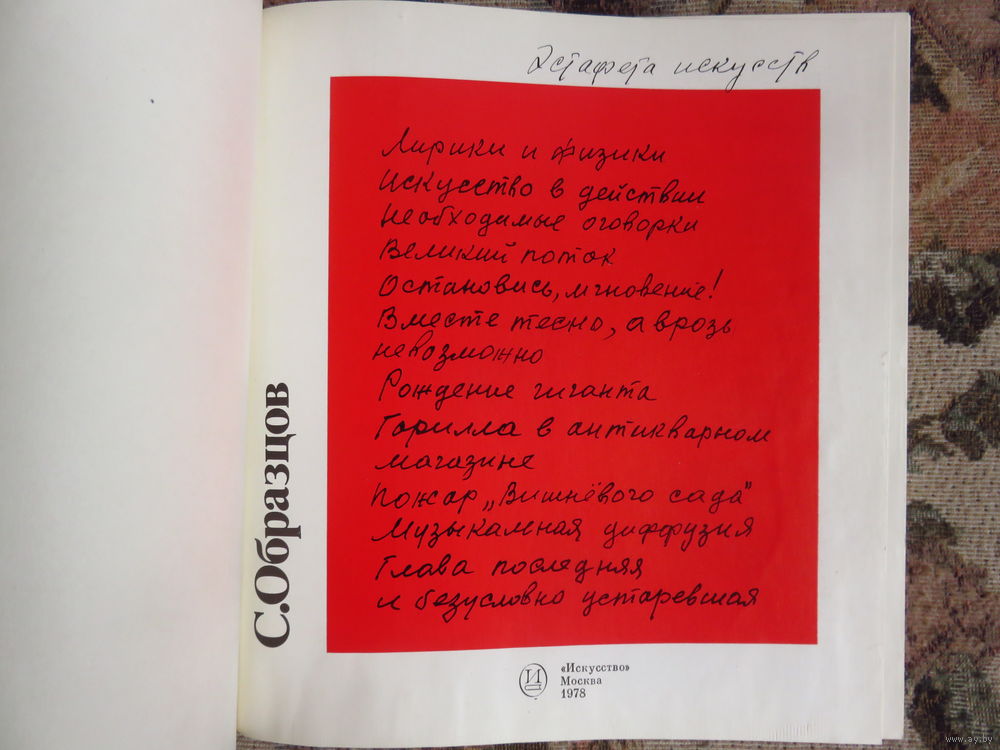 Эстафета искусств
Лирики и физики
Искусство в действии
Необходимые оговорки
Великий поток
Остановись, мгновение!
Вместе тесно, а врозь
невозможно
Рождение гиганта
Горилла в антикварном
магазине
Пожар „Вишнёвого сада"
Музыкальная диффузия
Глава последняя
и безусловно устаревшая
С.Образцов
И
«Искусство»
Москва
1978
www.ay.by